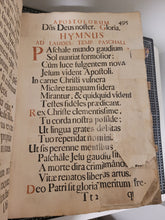 APOSTOLORUM 495
Dñs Deus noster. Gloria.
HYMNUS
AD LAUDES, TEMP. PASCHALI.
PAschale mundo gaudium
Sol nuntiat formosior:
Cùm luce fulgentem nova
Jesum vident Apostoli.
In carne Christi vulnera
Micare tamquam sidera
Mirantur, & quidquid vident
Testes fideles prædicant.
Rex Christe clementissime,
Tu corda nostra posside,
Ut lingua grates debitas
Tuo rependat nomini.
Ut sis perenne mentibus
Paschale Jesu gaudium
A morte dira criminum
Vitæ renatos libera.
DEo Patri sit gloria